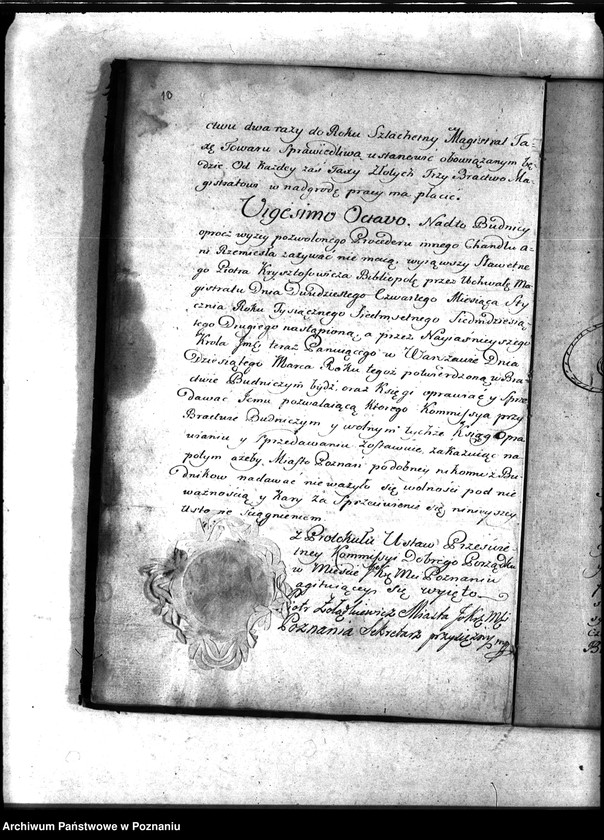 10
ctwu dwa razy do Roku Szlachetny Magistrat Ta-
xę Towaru Sprawiedliwą ustanowić obowiązanym bę-
dzie. Od każdey zaś Taxy Złotych Trzy Bractwo Ma-
gistratowi w nadgrodę pracy ma płacić.
Vigesimo Octavo. Nadto Budnicy
oprocz wyżey pozwolonego Procederu innego Chandlu a-
ni Rzemiesła zażywać nie mogą, wyiąwszy Sławetne-
go Piotra Krysztofowicza Bibliopolę przez Uchwałę Ma-
gistratu Dnia Dwudziestego Czwartego Miesiąca Sty-
cznia Roku Tysiącznego Siedmsetnego Siedmdziesią-
tego Drugiego nastąpioną, a przez Nayiaśnieyszego
Krola Jmci teraz Panuiącego w Warszawie Dnia
Dziesiątego Marca Roku tegoż potwierdzoną w Bra-
ctwie Budniczym bydź, oraz Księgi oprawiać y Sprze-
dawać Jemu pozwalaiącą, ktorego Kommissya przy
Bractwie Budniczym y wolnym tychże Ksiąg Opra-
wianiu y Sprzedawaniu zostawuie, zakazuiąc na-
potym ażeby Miasto Poznań podobney nikomu z Bu-
dnikow nadawać nie ważyło się wolności pod nie-
ważnością y kary za Sprzeciwienie się ninieyszey
Usta-ie ściągnieniem
Z Protokułu Ustaw Prześwie-
tney Kommissyi Dobrego Porządku
w Mieście JKMci Poznaniu
agituiącey się wyięto
Piotr Żołądkiewicz Miasta JKMci
Poznania Sekretarz przysięzony mpp
Archiwum Państwowe w Poznaniu